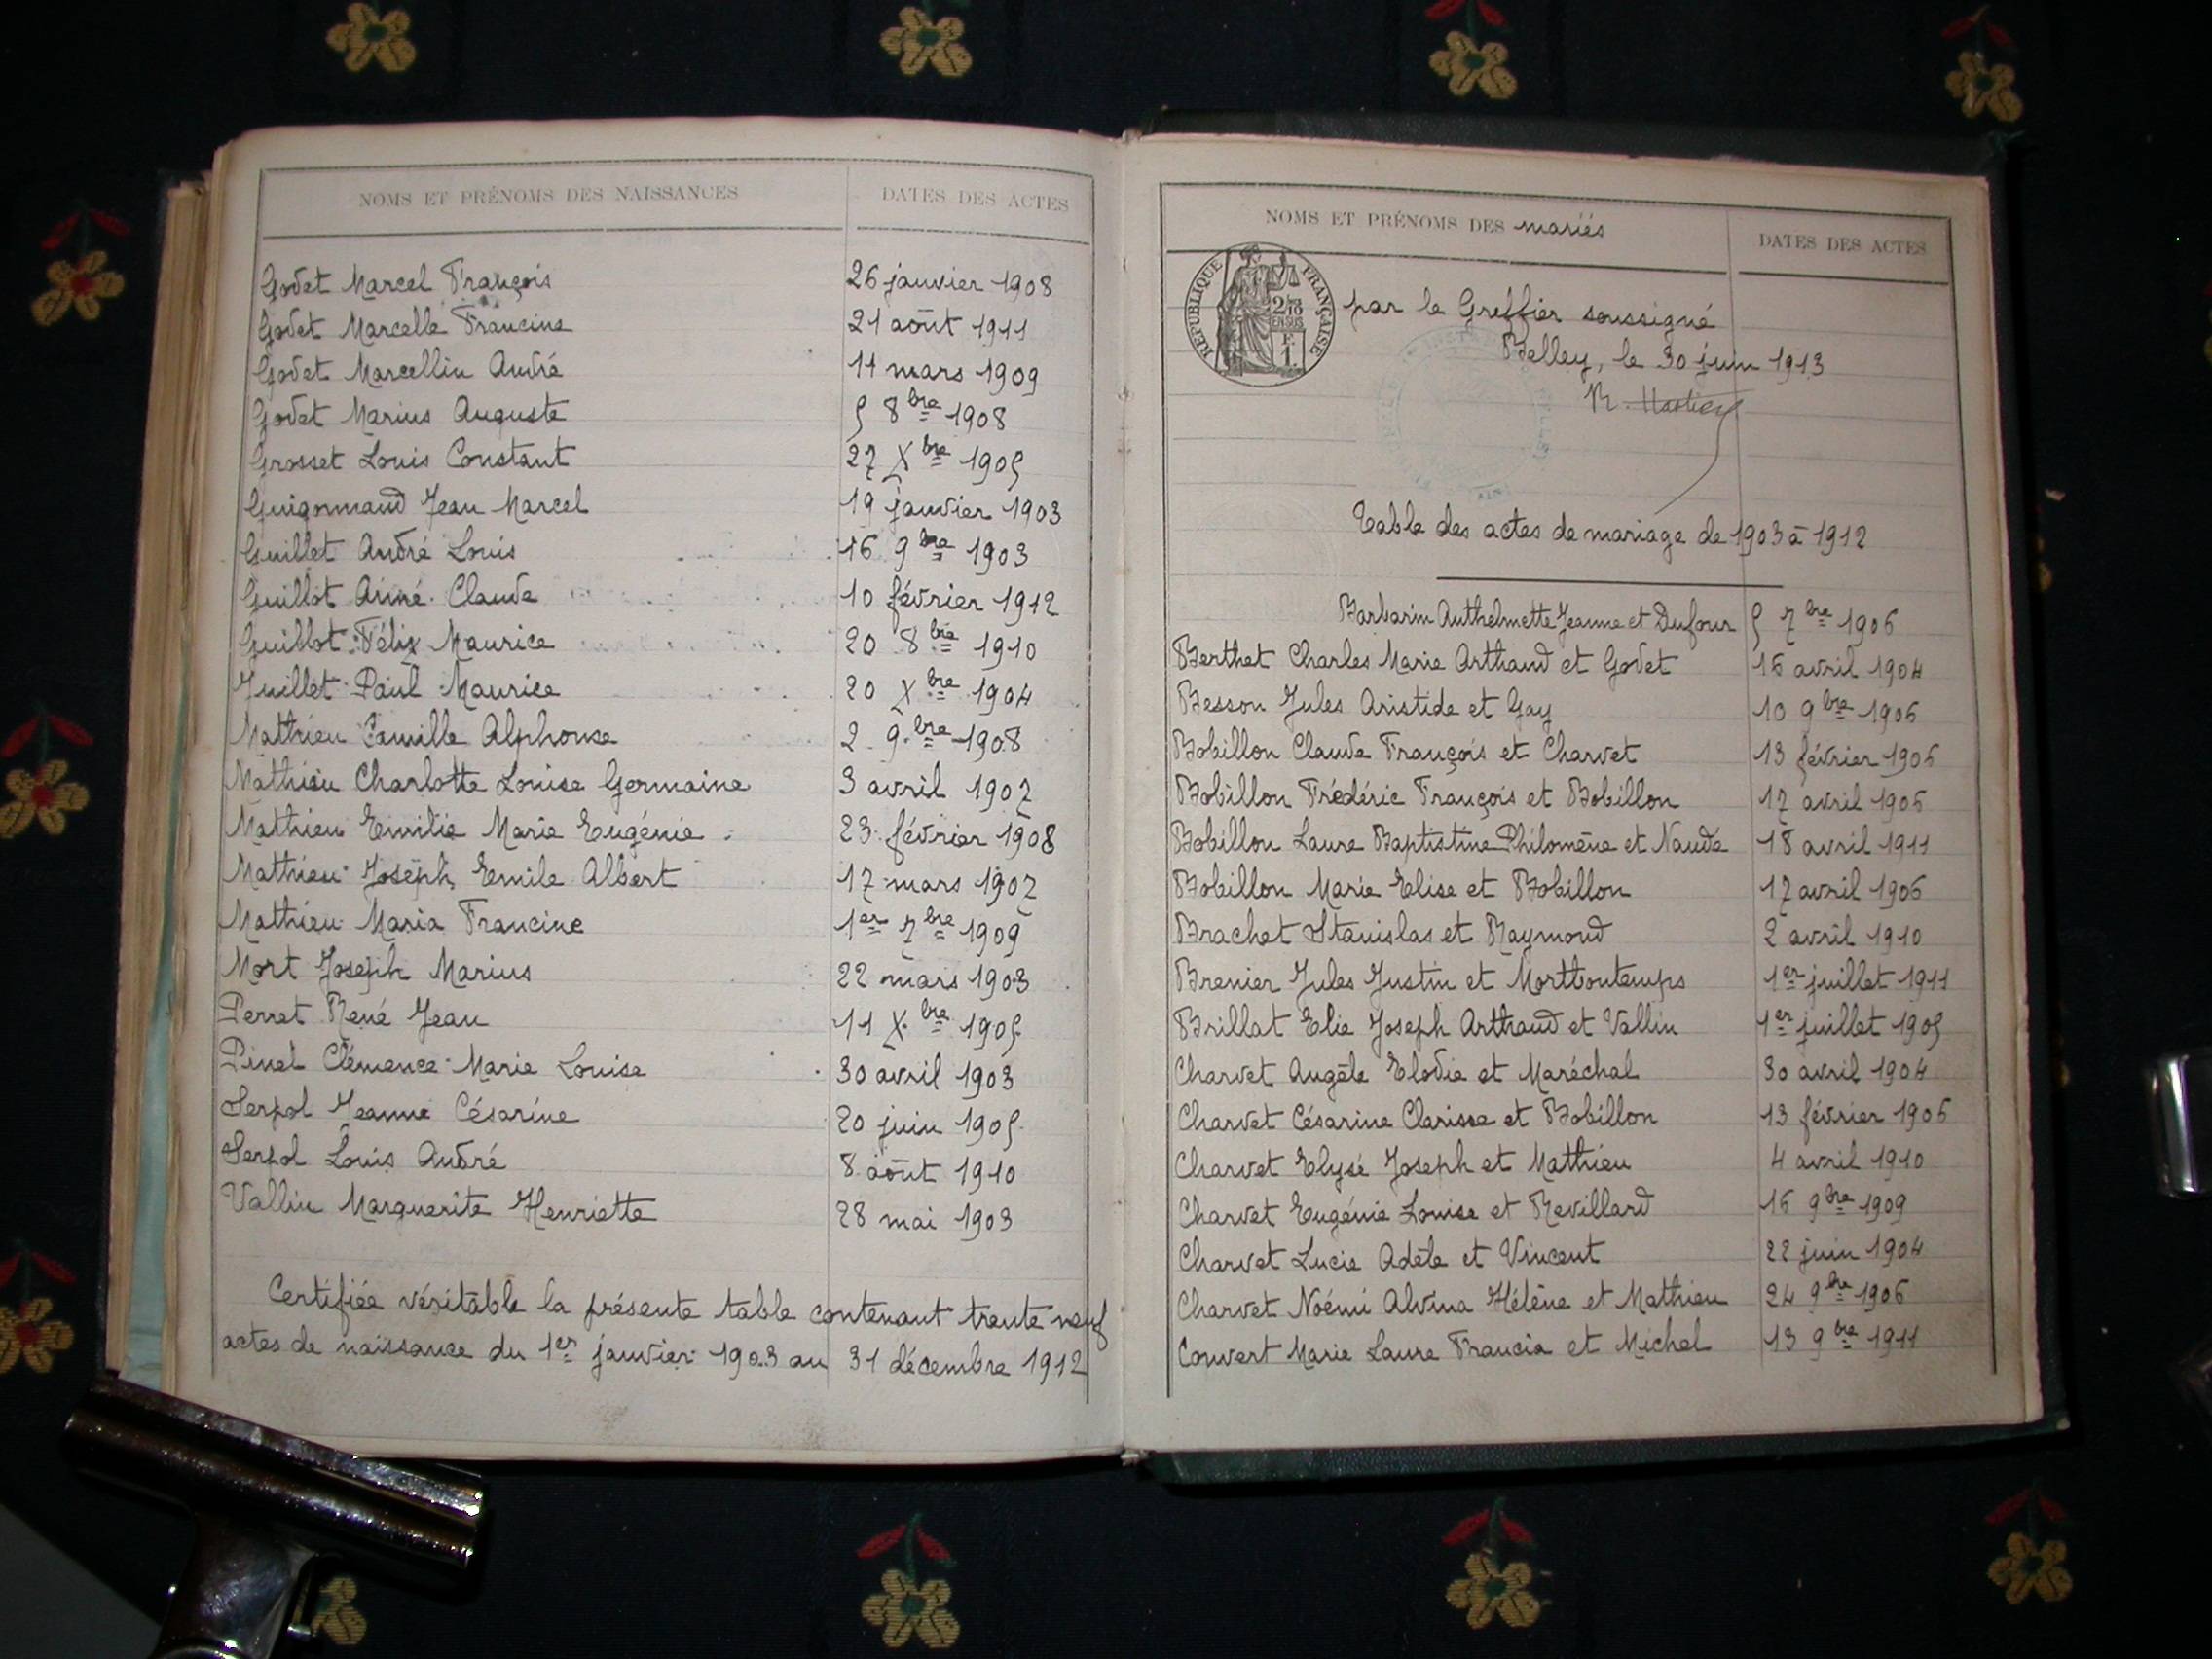 NOMS ET PRÉNOMS DES NAISSANCES DATES DES ACTES
Godet Marcel François 26 janvier 1908
Godet Marcelle Francine 21 août 1911
Godet Marcellin André 11 mars 1909
Godet Marius Auguste 5 8bre 1908
Grosset Louis Constant 27 Xbre 1905
Guigonnand Jean Marcel 19 janvier 1903
Guillet André Louis 16 9bre 1903
Guillot Aimé Claude 10 février 1912
Guillot Félix Maurice 20 8bre 1910
Juillet Paul Maurice 20 Xbre 1904
Mathieu Camille Alphonse 2 9bre 1908
Mathieu Charlotte Louise Germaine 3 avril 1907
Mathieu Emilie Marie Eugénie 23 février 1908
Mathieu Joseph Emile Albert 17 mars 1907
Mathieu Maria Francine 1er 7bre 1909
Mort Joseph Marius 22 mars 1903
Perret René Jean 11 Xbre 1905
Pinel Clémence Marie Louise 30 avril 1903
Serpol Jeanne Césarine 20 juin 1905
Serpol Louis André 8 août 1910
Vallin Marguerite Henriette 28 mai 1903
Certifiée véritable la présente table contenant trente neuf
actes de naissance du 1er janvier 1903 au 31 décembre 1912
NOMS ET PRÉNOMS DES mariés DATES DES ACTES
RÉPUBLIQUE FRANÇAISE
par le Greffier soussigné
Belley, le 30 juin 1913
Table des actes de mariage de 1903 à 1912
Barbarin Anthelmette Jeanne et Dufour 5 7bre 1906
Berthet Charles Marie Arthaud et Godet 16 avril 1904
Besson Jules Aristide et Gay 10 9bre 1906
Bobillon Claude François et Charvet 13 février 1906
Bobillon Frédéric François et Bobillon 17 avril 1906
Bobillon Laure Baptistine Philomène et Naude 18 avril 1911
Bobillon Marie Elise et Bobillon 17 avril 1906
Brachet Stanislas et Raymond 2 avril 1910
Brenier Jules Justin et Morttontemps 1er juillet 1911
Brillat Elie Joseph Arthaud et Vallin 1er juillet 1905
Charvet Angèle Elodie et Maréchal 30 avril 1904
Charvet Césarine Clarisse et Bobillon 13 février 1906
Charvet Elysé Joseph et Mathieu 4 avril 1910
Charvet Eugénie Louise et Revillard 16 9bre 1909
Charvet Lucie Adèle et Vincent 22 juin 1904
Charvet Noémi Alvina Hélène et Mathieu 24 9bre 1906
Convert Marie Laure Francia et Michel 13 9bre 1911